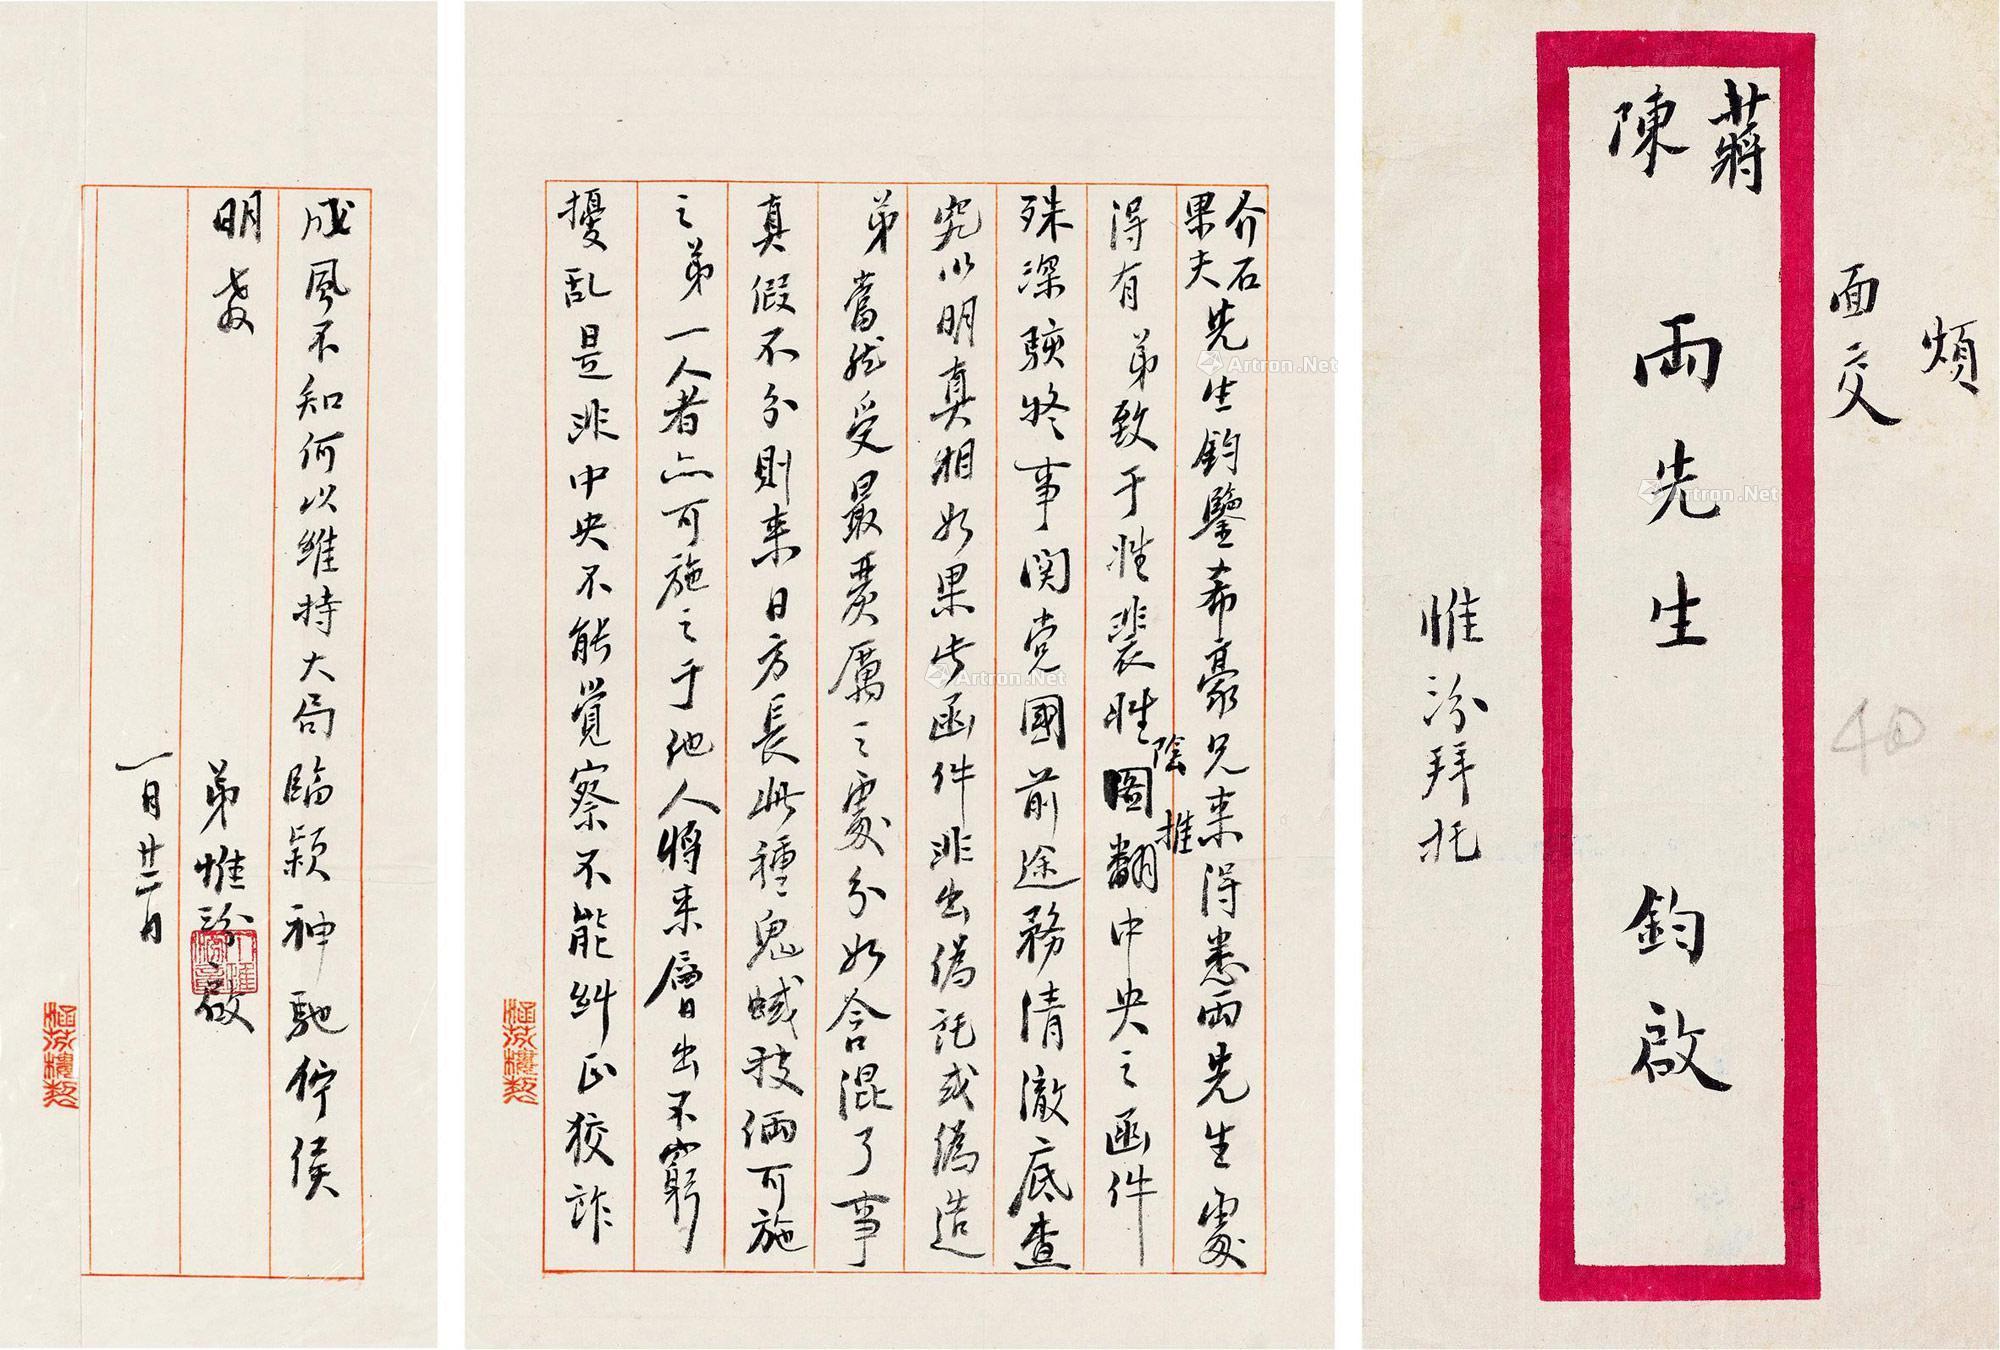 煩
面交
蔣
陳
兩先生 鈞啟
惟汾拜托
40
介石
果夫
先生鈞鑒希豪兄来得悉兩先生處
得有弟致于惟裴惟陰圖推翻中央之函件
殊深駭怪事関党國前途務清澈底查
究以明真相如果此函件非出偽託或偽造
弟當然受最嚴厲之處分如含混了事
真假不分則来日方長此種鬼蜮技倆可施
之弟一人者亦可施之于他人將来層出不窮
擾乱是非中央不能覺察不能糾正狡詐
成風不知何以維持大局臨颖神馳佇候
明教
弟惟汾啟
一月廿二日
Artron.Net
Artron.Net
Artron.Net